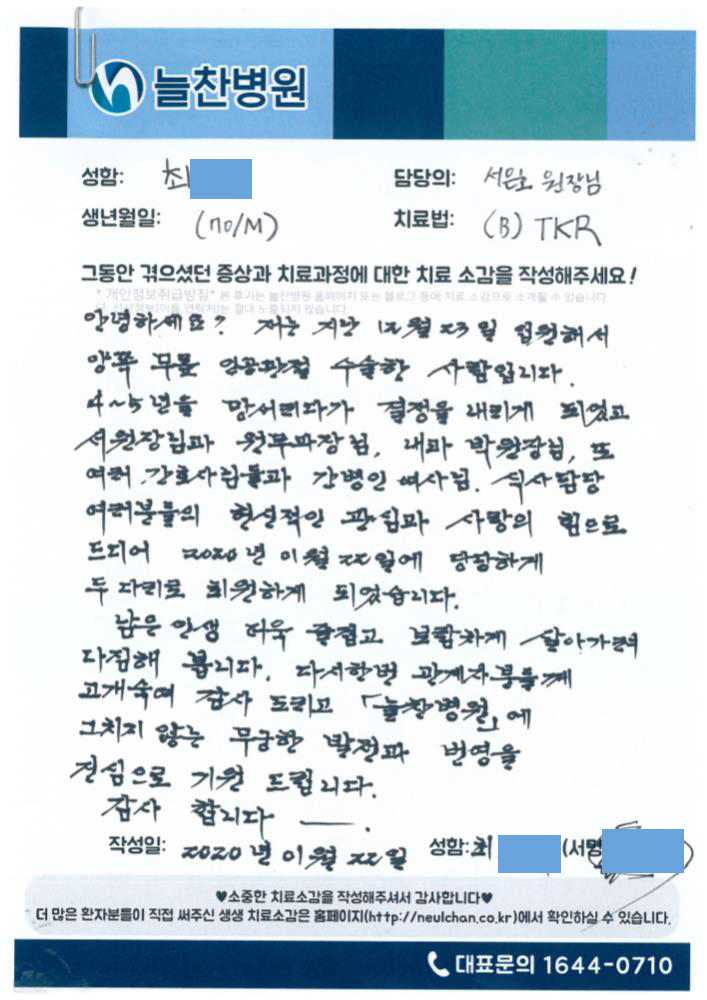 늘찬병원
성함: 최
담당의: 서원호 원장님
생년월일: (770/M)
치료법: (B) TKR
그동안 겪으셨던 증상과 치료과정에 대한 치료 소감을 작성해주세요!
* 개인정보취급방침* 본 후기는 늘찬병원 홈페이지 또는 블로그 등에 치료 소감으로 소개될 수 있습니다.
단, 신상정보(이름,연락처)는 절대 노출되지 않습니다.
안녕하세요? 저는 지난 12월 23일 입원해서
양쪽 무릎 인공관절 수술한 사람입니다.
4~5년을 망서리다가 결정을 내리게 되었고
서원장님과 원무과장님, 내과 박원장님, 또
여러 간호사님들과 간병인 여사님. 식사담당
여러분들의 헌신적인 관심과 사랑의 힘으로
드디어 2020년 01월 22일에 당당하게
두 다리로 퇴원하게 되었습니다.
남은 인생 더욱 즐겁고 보람차게 살아가려
다짐해 봅니다. 다시한번 관계자분들께
고개숙여 감사 드리고 「늘찬병원」에
그치지 않는 무궁한 발전과 번영을
진심으로 기원 드립니다.
감사 합니다 ―.
작성일: 2020년 01월 22일 성함: 최 (서명
♥소중한 치료소감을 작성해주셔서 감사합니다♥
더 많은 환자분들이 직접 써주신 생생 치료소감은 홈페이지(http://neulchan.co.kr)에서 확인하실 수 있습니다.
대표문의 1644-0710